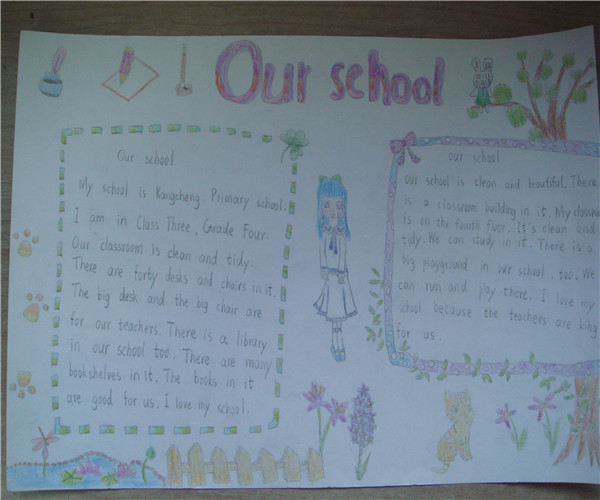 Our school
Our school
My school is Kangcheng Primary school.
I am in Class Three, Grade Four.
Our classroom is clean and tidy.
There are forty desks and chairs in it.
The big desk and the big chair are
for our teachers. There is a library
in our school too. There are many
bookshelves in it. The books in it
are good for us. I love my school.
our school
our school is clean and beautiful. There
is a classroom building in it. My classroo
is on the fourth floor. It's clean and
tidy. We can study in it. There is a
big playground in our school, too. We
can run and play there. I love my
school because the teachers are king
for us.